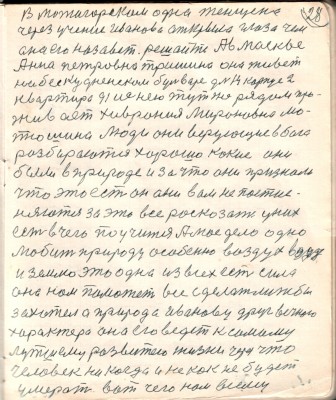 28
В можгагорском одна женщина
через учение Иванова открыла глаза чем
она его назавет. решайте А в москве
Анна петровна тришина она живет
на бескудненском бульваре д. 14 карпус 2
квартира 91 и с нею тут но рядом про-
живает Хиврония Мироновна мо-
тошина Люди они верующие в бога
разбираются хорошо какие они
были в природе и за что они признали
что это ест он они вам не постис-
няются за это все росказат у них
ест в чего поучится А мое дело одно
любит природу особено воздух воду
и замлю это одна из всех ест сила
она нам поможет все сделат лиж бы
захотел а природа Иванову друг вечного
характера она его ведет к самаму
лутшему развитею жизни чуи что
человек никогда и некок не будет
умерат. вот чего нам всему